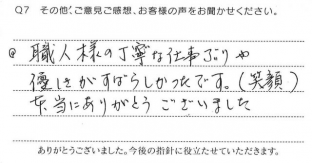 Q7 その他、ご意見ご感想、お客様の声をお聞かせください。
◎ 職人様の丁寧な仕事ぶりや
優しさがすばらしかったです。(笑顔)
本当にありがとうございました
ありがとうございました。今後の指針に役立たせていただきます。